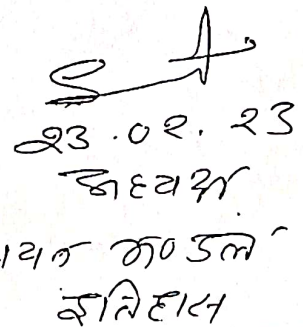 23.02.23
अध्यक्ष
मण्डल
इतिहास